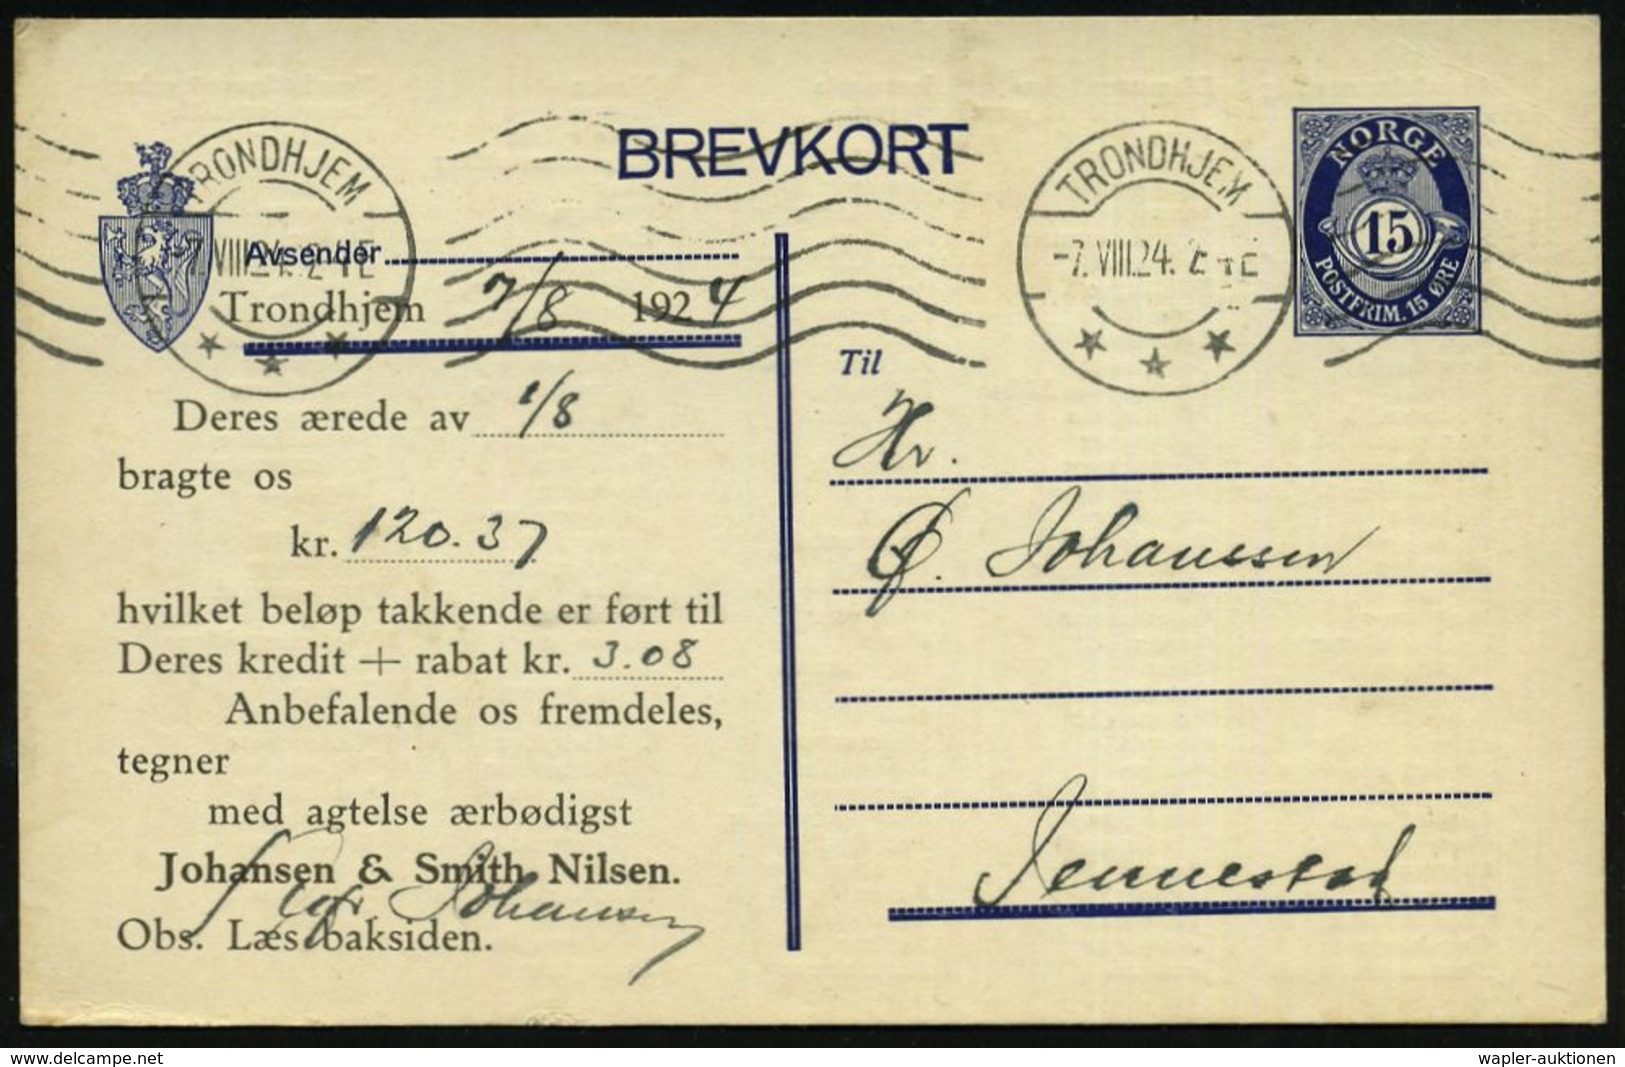 BREVKORT
TRONDHJEM
TRONDHJEM
-7.VIII.24.
NORGE
15
POSTFRIM. 15 ØRE
Avsender
Trondhjem 7/8 1924
Deres ærede av 1/8
bragte os
kr. 120.37
hvilket beløp takkende er ført til
Deres kredit + rabat kr. 3.08
Anbefalende os fremdeles,
tegner
med agtelse ærbødigst
Johansen & Smith Nilsen.
Johansen
Obs. Læs baksiden.
Til
Hr.
Johanssen
Jennestad
www.delcampe.net
wapler-auktionen